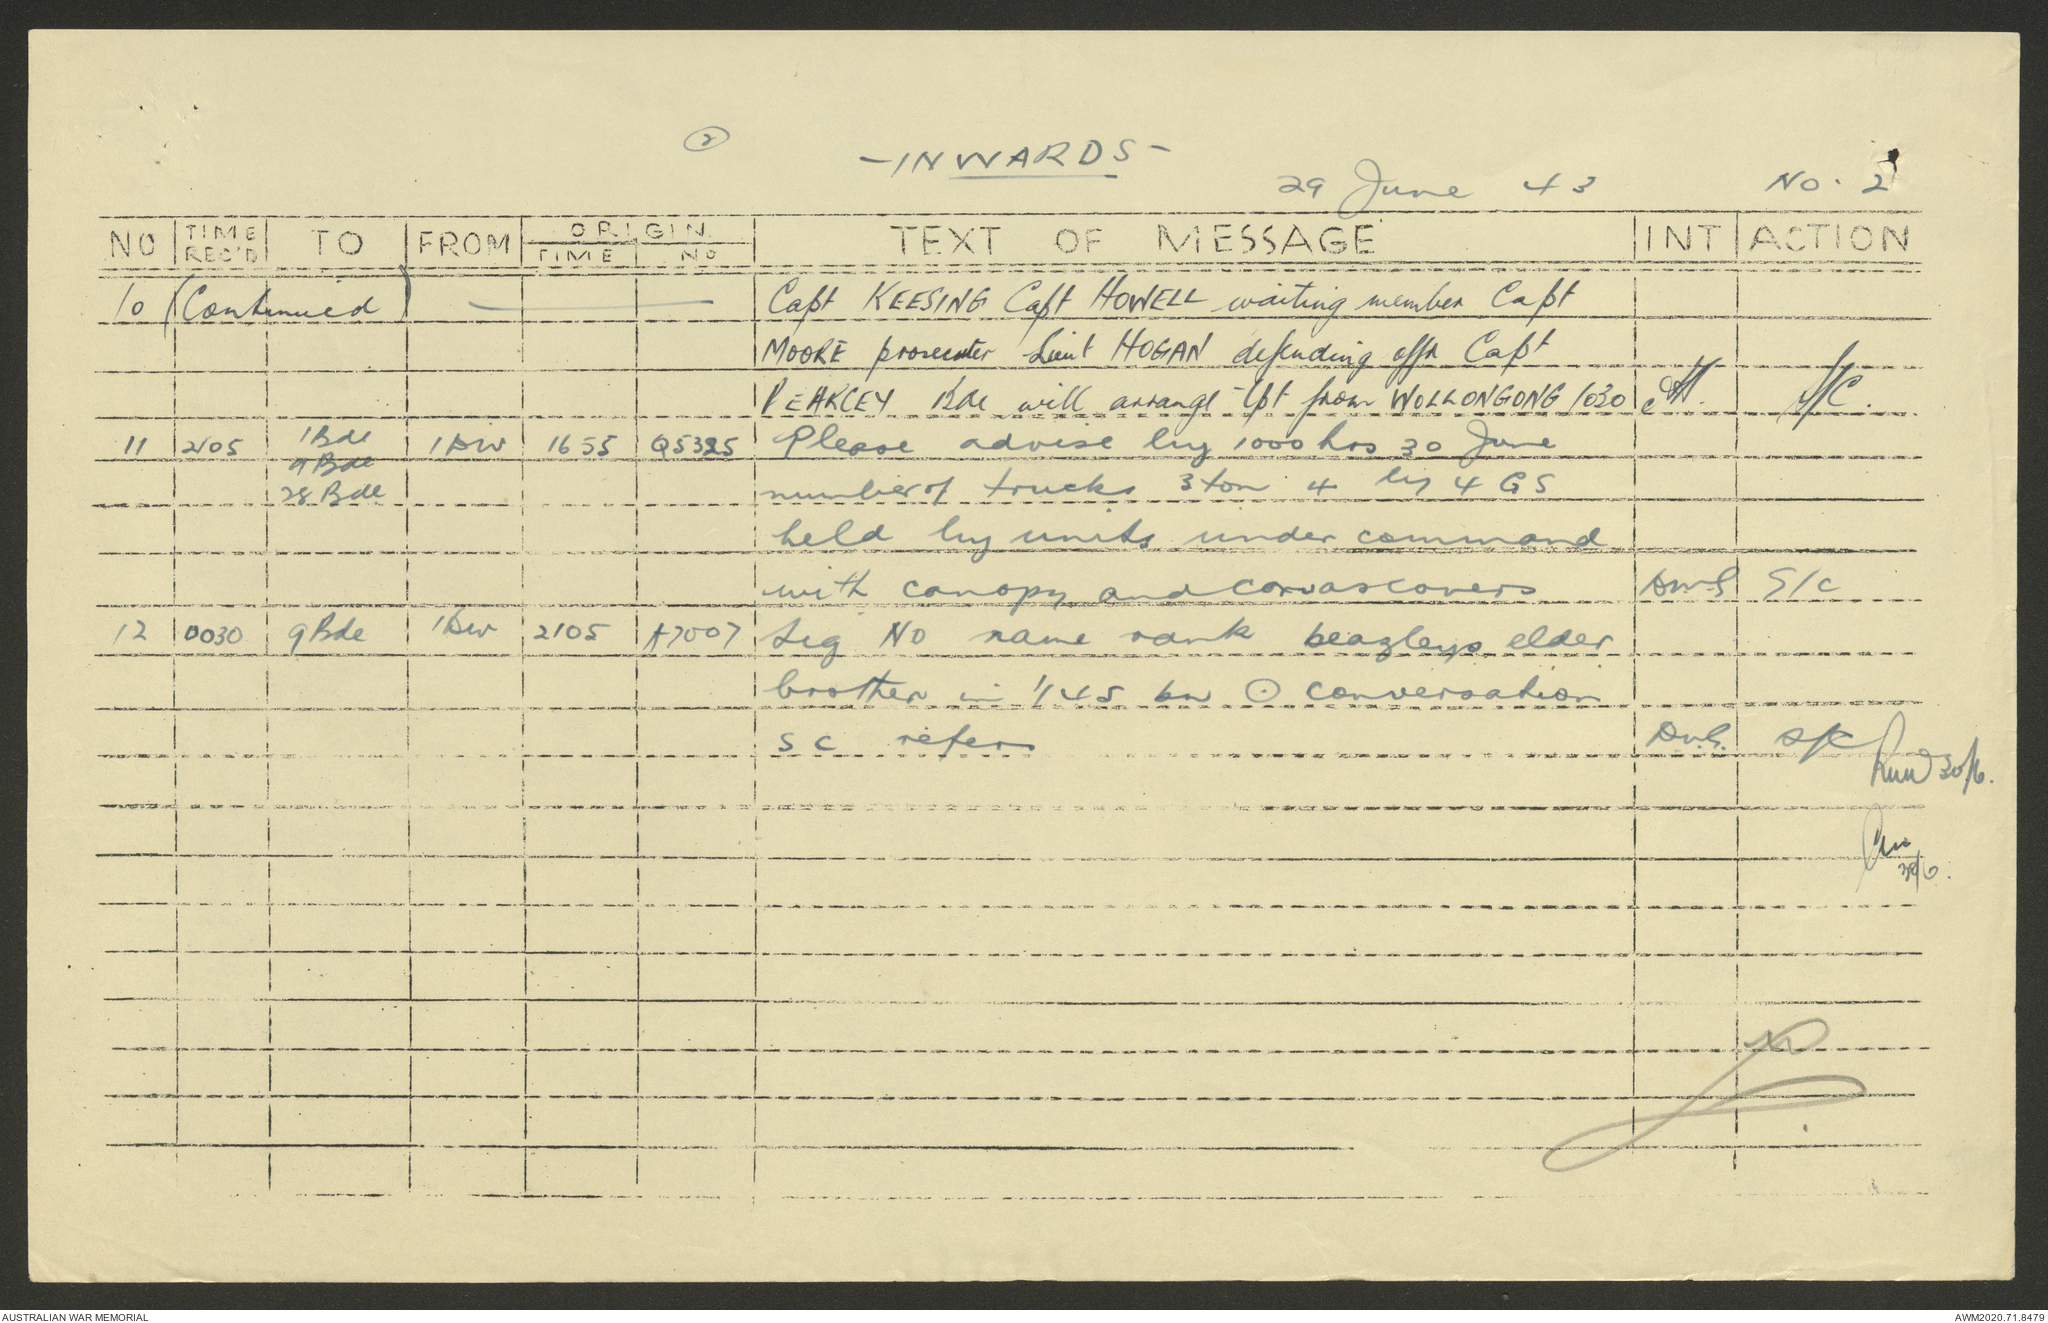 2
- INWARDS -
29 June 43 No. 2
NO TIME REC'D TO FROM ORIGIN. TIME NO TEXT OF MESSAGE INT ACTION
10 (Continued) Capt KEESING Capt HOWELL waiting member Capt
MOORE prosecuter Lieut HOGAN defending offr Capt
will arrange tpt from WOLLONGONG 1030
11 2105 1Bde 1Div 1655 Q5325 Please advise by 1000 hrs 30 June
9 Bde
28 Bde number of trucks 3 ton 4 by 4 GS
held by units under command
with canopy and canvas covers S/C
12 0030 9Bde 1Div 2105 A7007 Sig NO name rank beazleys elder
brother in 1/45 bn ⊙ conversation
S C refers S/C
30/6.
30/6.
AUSTRALIAN WAR MEMORIAL AWM2020.71.8479